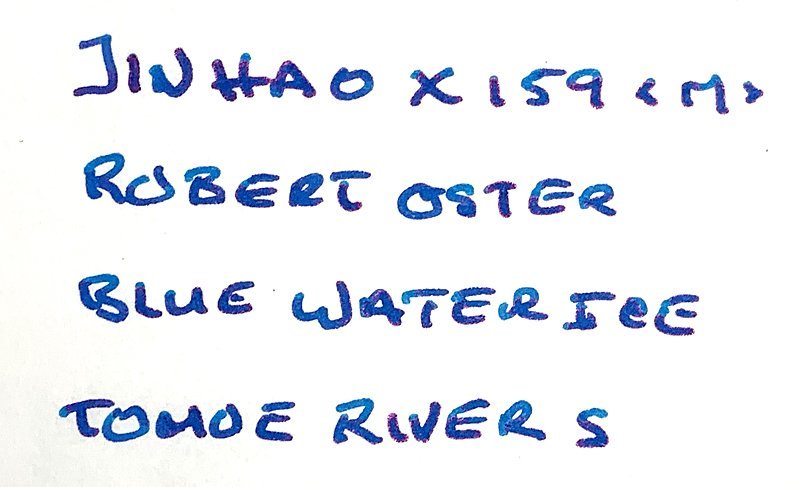 JINHAO X159 <M>
ROBERT OSTER
BLUE WATER ICE
TOMOE RIVER S